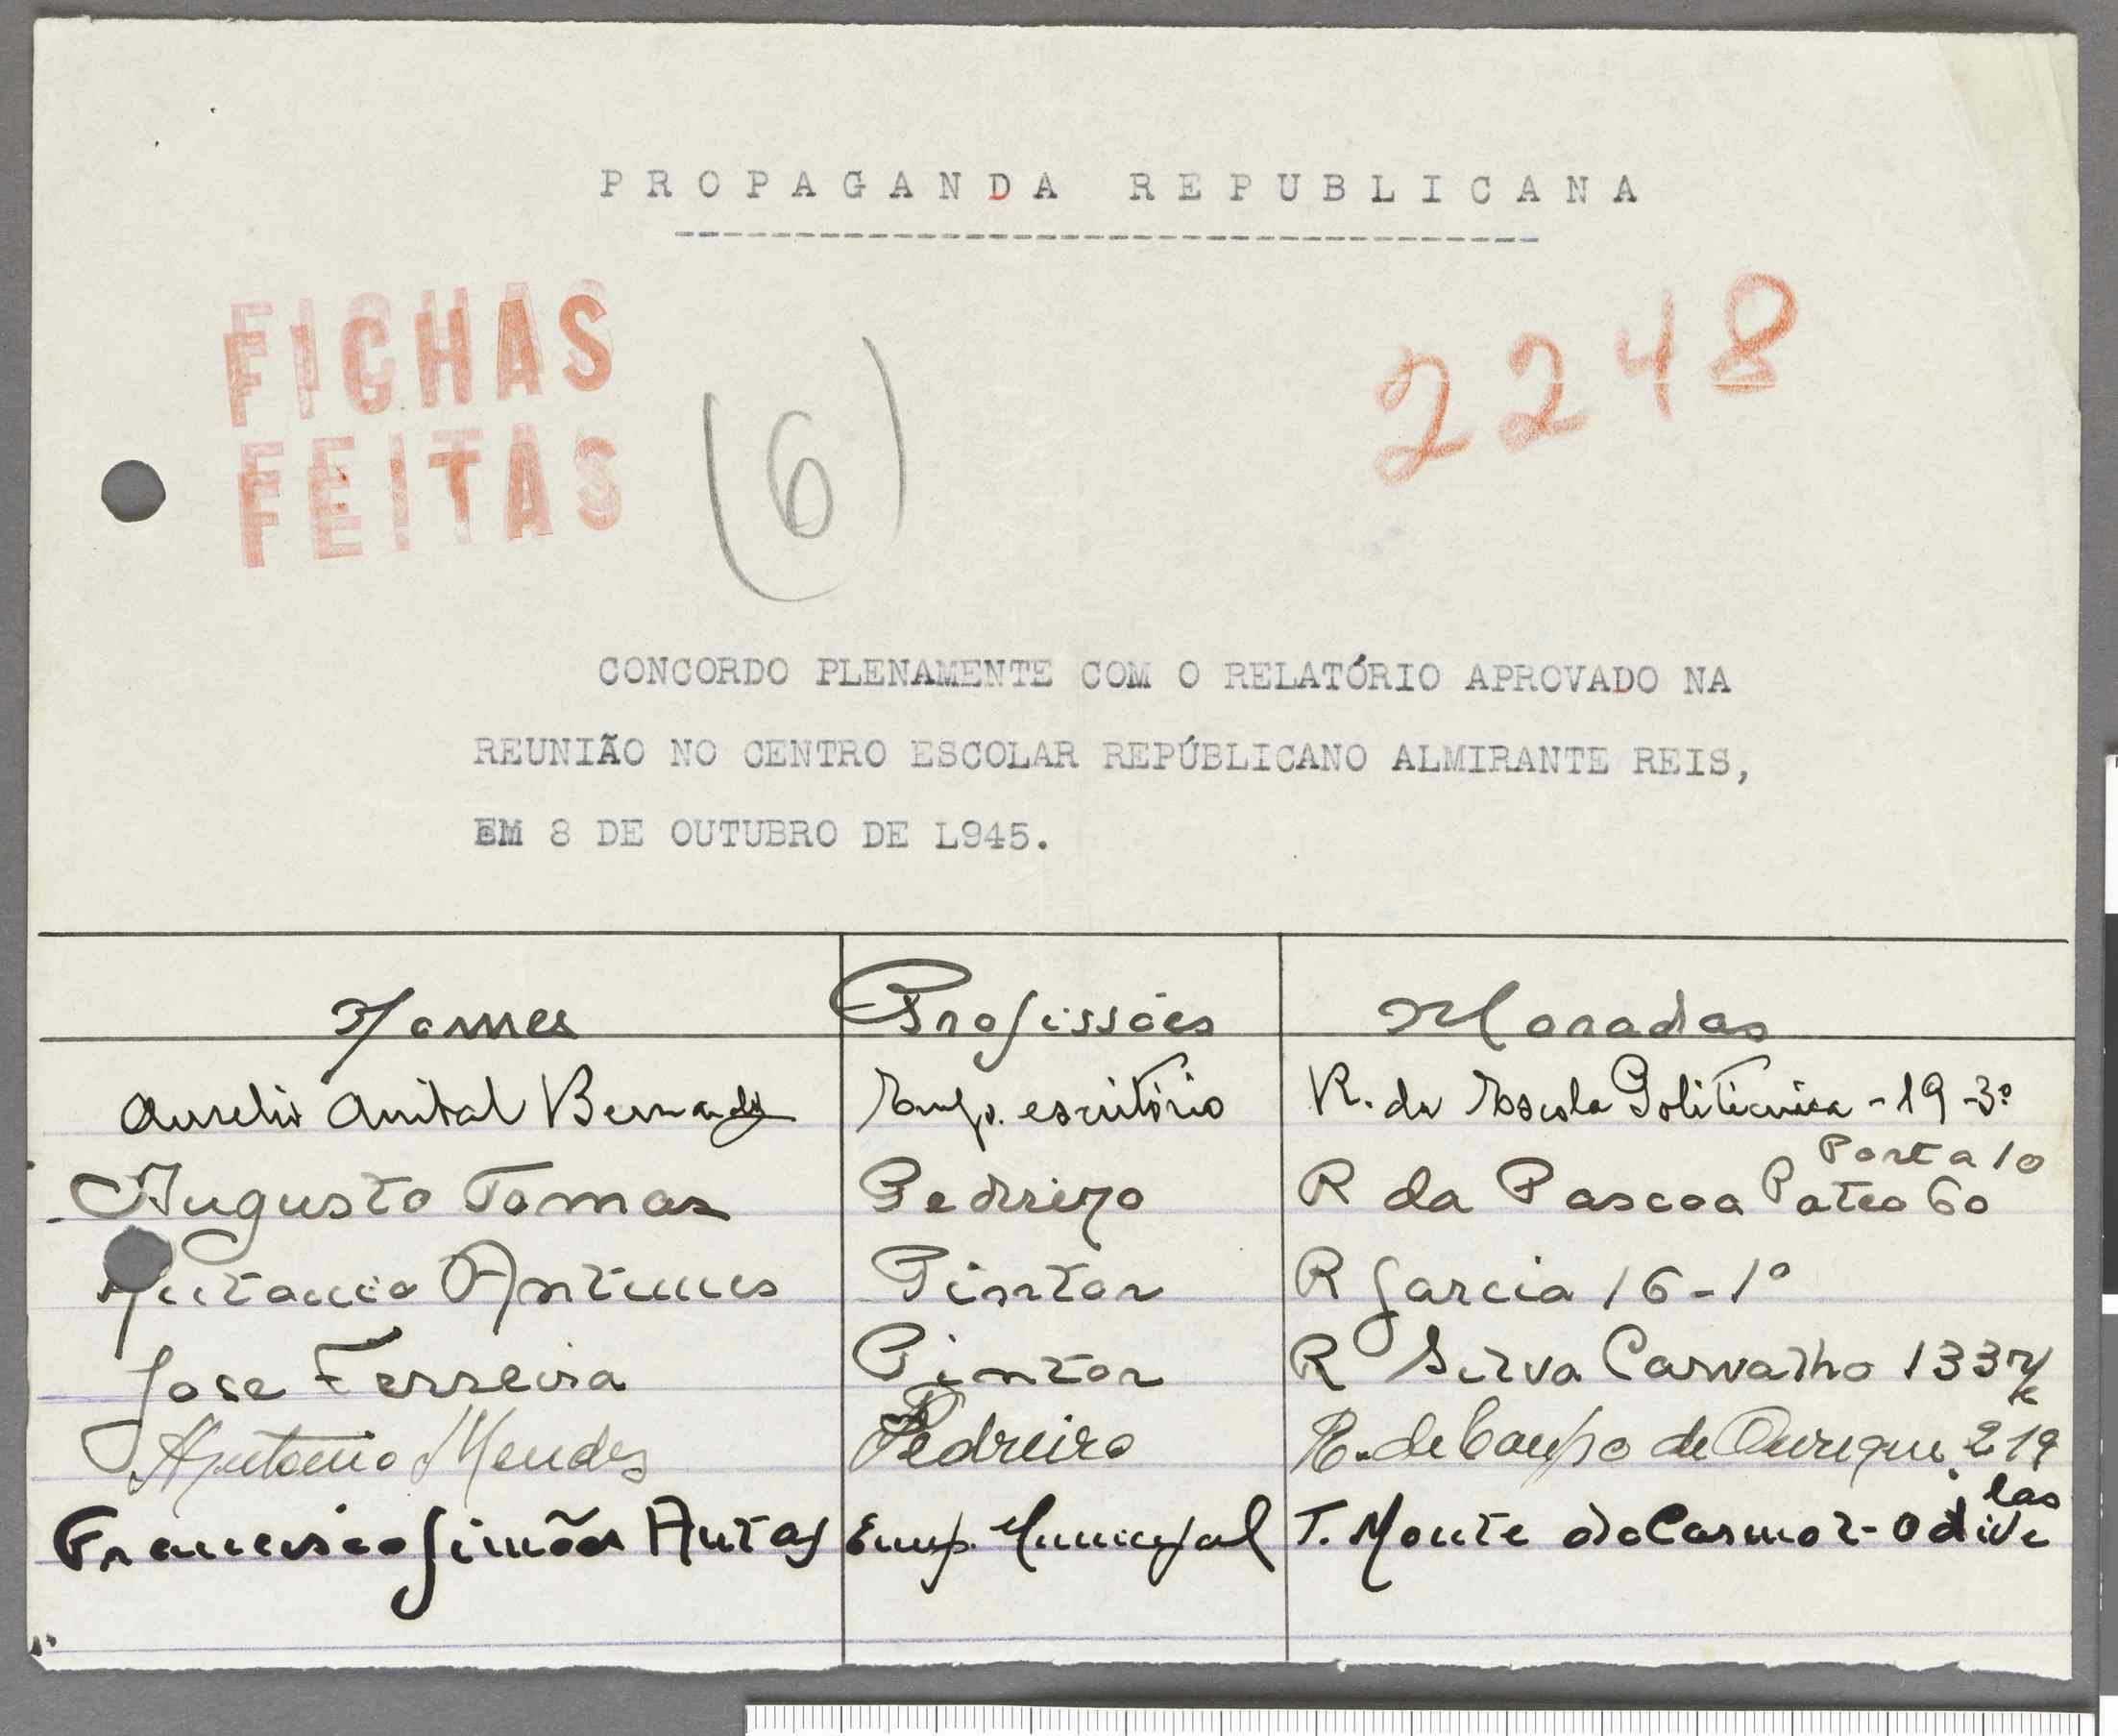 PROPAGANDA REPUBLICANA
FICHAS
FEITAS
(6)
2248
CONCORDO PLENAMENTE COM O RELATÓRIO APROVADO NA
REUNIÃO NO CENTRO ESCOLAR REPÚBLICANO ALMIRANTE REIS,
EM 8 DE OUTUBRO DE L945.
Nomes Profissões Moradas
Aurelio Anibal Bernardo Emp. escritório R. da Escola Politecnica - 19 - 3º
Augusto Tomas Pedriero R da Pascoa Pateo 60 Porta 10
Antonio Antunes Pintor R Garcia 16 - 1º
Jose Ferreira Pintor R Silva Carvalho 133
Antonio Mendes Pedreiro R. de Campo de Ourique 219
Francisco Simões Antas Emp. Municipal T. Monte do Carmo 2 - Odivelas